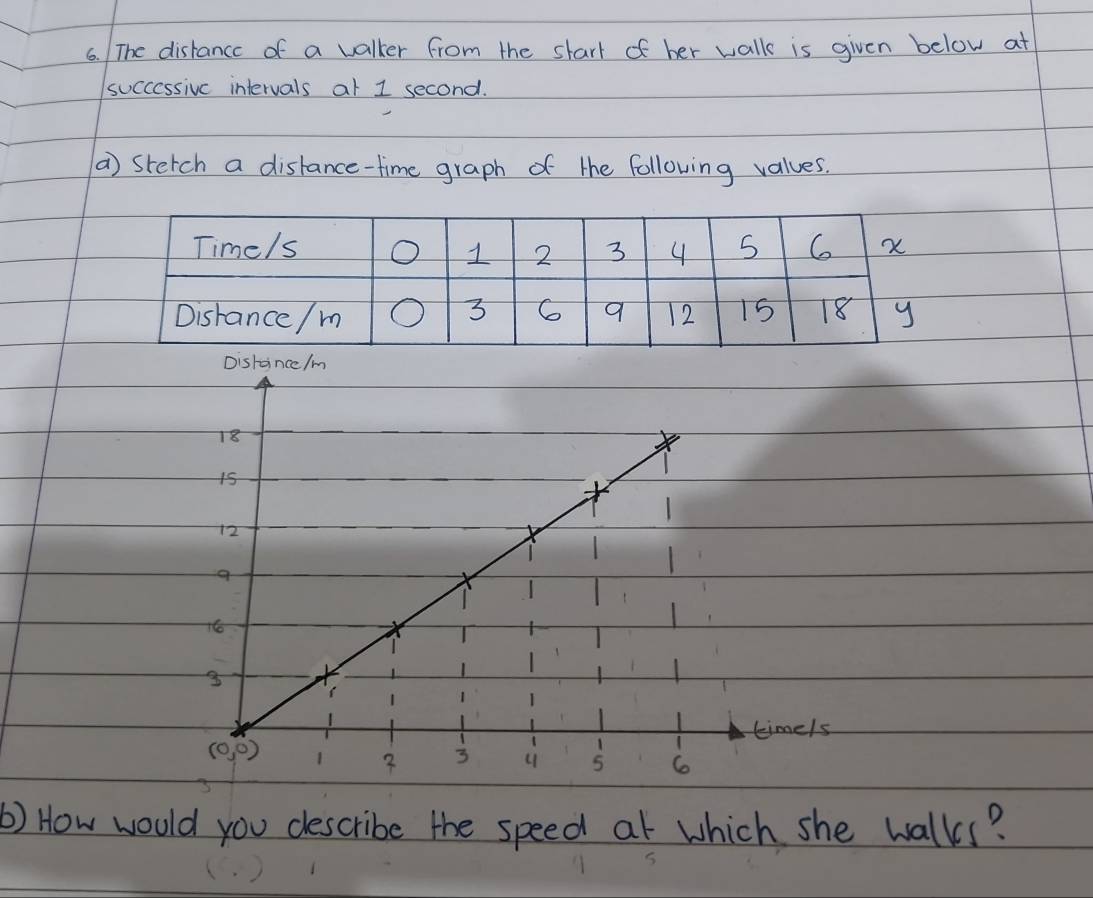 6. The distance of a walker from the start of her walk is given below at
successive intervals at 1 second.
a) Sketch a distance-time graph of the following values.
Time/s 0 1 2 3 4 5 6 x
Distance/m 0 3 6 9 12 15 18 y
Distance/m
18
15
12
9
6
3
time/s
(0,0) 1 2 3 4 5 6
b) How would you describe the speed at which she walks?